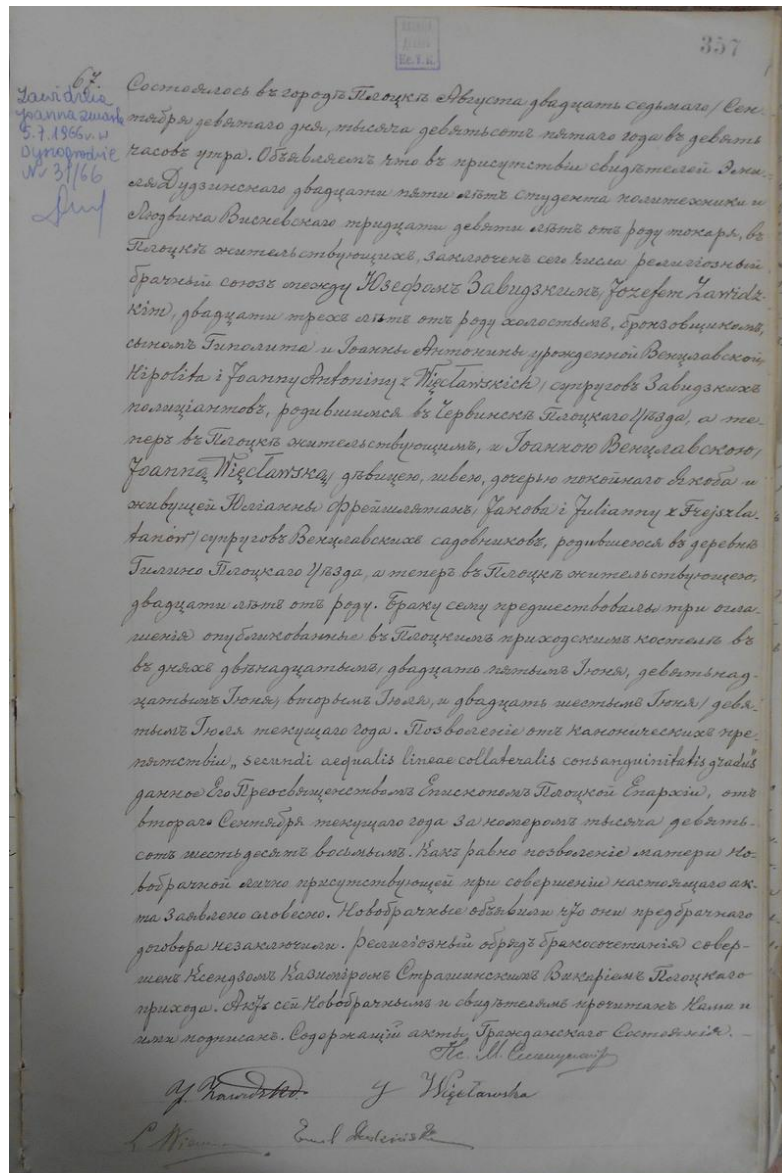 357
67
Zawidzka
Joanna zmarła
5.7.1966 r. w
Wyszogrodzie
№ 37/66
Состоялось въ городѣ Плоцкѣ Августа двадцать седьмаго / Сен-
тября девятаго дня, тысяча девятьсотъ пятаго года въ девять
часовъ утра. Объявляемъ что въ присутствіи свидѣтелей Эми-
ля Дудзинскаго двадцати пяти лѣтъ студента политехники и
Людвика Висневскаго тридцати девяти лѣтъ отъ роду токаря, въ
Плоцкѣ жительствующихъ, заключенъ сего числа религіозный
брачный союзъ между Юзефомъ Завидзкимъ, /Józefem Zawidz-
kim, двадцати трехъ лѣтъ отъ роду холостымъ, бронзовщикомъ,
сыномъ Гиполита и Іоанны Антонины урожденной Венцлавской,
Hipolita i Joanny Antoniny z Więcławskich/ супруговъ Завидзкихъ
полиціантовъ, родившимся въ Червинскѣ Плоцкаго Уѣзда, а те-
перь въ Плоцкѣ жительствующимъ, и Іоанною Венцлавскою,
Joanną Więcławską/ дѣвицею, швею, дочерью покойнаго Якоба и
живущей Юліанны Фрейшлятанъ, Jakóba i Julianny z Frejszla-
tanów/ супруговъ Венцлавскихъ садовниковъ, родившеюся въ деревнѣ
Гилино Плоцкаго Уѣзда, а теперь въ Плоцкѣ жительствующею,
двадцати лѣтъ отъ роду. Браку сему предшествовали три огла-
шенія опубликованные въ Плоцкимъ приходскимъ костелѣ въ
въ дняхъ двѣнадцатымъ, двадцать пятымъ Іюня, девятьнад-
цатымъ Іюня, вторымъ Іюля, и двадцать шестымъ Іюня / девя-
тымъ Іюля текущаго года. Позволеніе отъ каноническихъ пре-
пятствій „secundi aequalis lineae collateralis consanguinitatis gradus"
данное Его Преосвященствомъ Епископомъ Плоцкой Епархіи, отъ
втораго Сентября текущаго года за номеромъ тысяча девять-
сотъ шестьдесятъ восьмымъ. Какъ равно позволеніе матери но-
вобрачной лично присутствующей при совершеніи настоящаго ак-
та заявлено словесно. Новобрачные объявили что они предбрачнаго
договора незаключили. Религіозный обрядъ бракосочетанія совер-
шенъ Ксендзомъ Казиміромъ Страшинскимъ Викаріемъ Плоцкаго
прихода. Актъ сей Новобрачнымъ и свидѣтелямъ прочитанъ Нами и
ими подписанъ. Содержащій акты Гражданскаго Состоянія.
Кс. М.
J. Zawidzki J Więcławska
Emil Dudziński